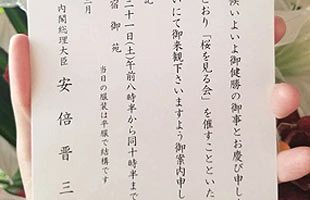 候いよいよ御健勝の御事とお慶び申し
とおり「桜を見る会」を催すことといた
いにて御来観下さいますよう御案内申し
記
三十一日(土)午前八時半から同十時半まで
宿御苑
当日の服装は平服で結構です
三月
内閣総理大臣 安倍晋三